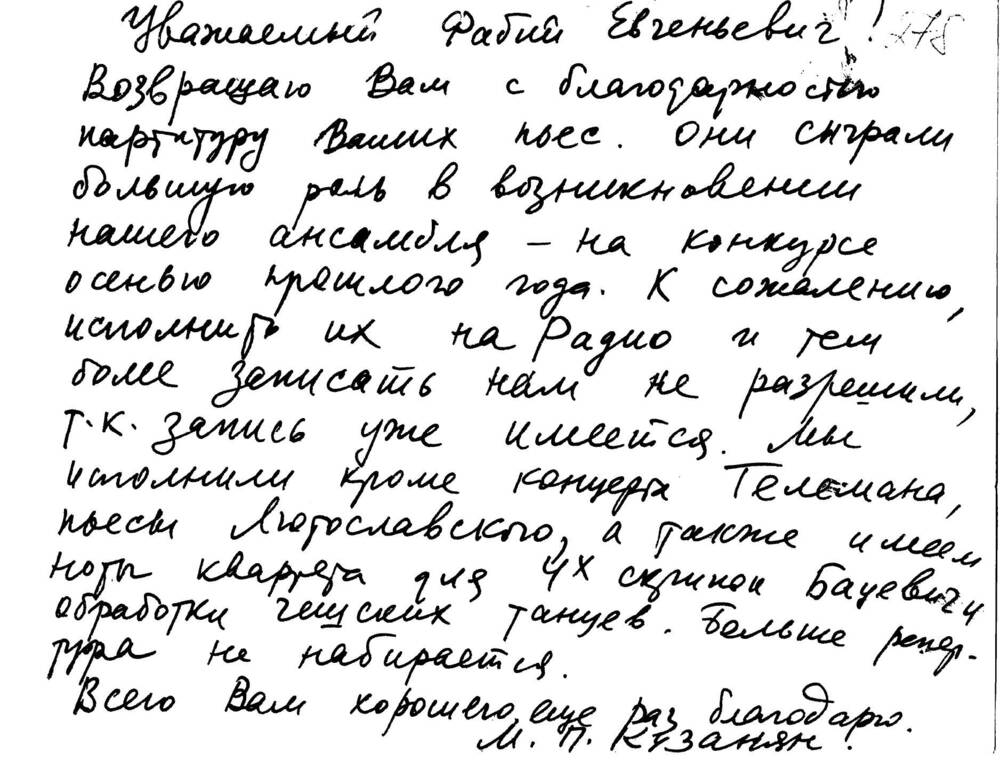 Уважаемый Фабий Евгеньевич! 278
Возвращаю Вам с благодарностью
партитуру Ваших пьес. Они сыграли
большую роль в возникновении
нашего ансамбля – на конкурсе
осенью прошлого года. К сожалению,
исполнить их на Радио и тем
более записать нам не разрешили,
т.к. запись уже имеется. Мы
исполнили кроме концерта Телемана,
пьесы Лютославского, а также имеем
ноты квартета для 4х скрипок Бацевич и
обработки чешских танцев. Больше репер-
туара не набирается.
Всего Вам хорошего, еще раз благодарю.
М. П.